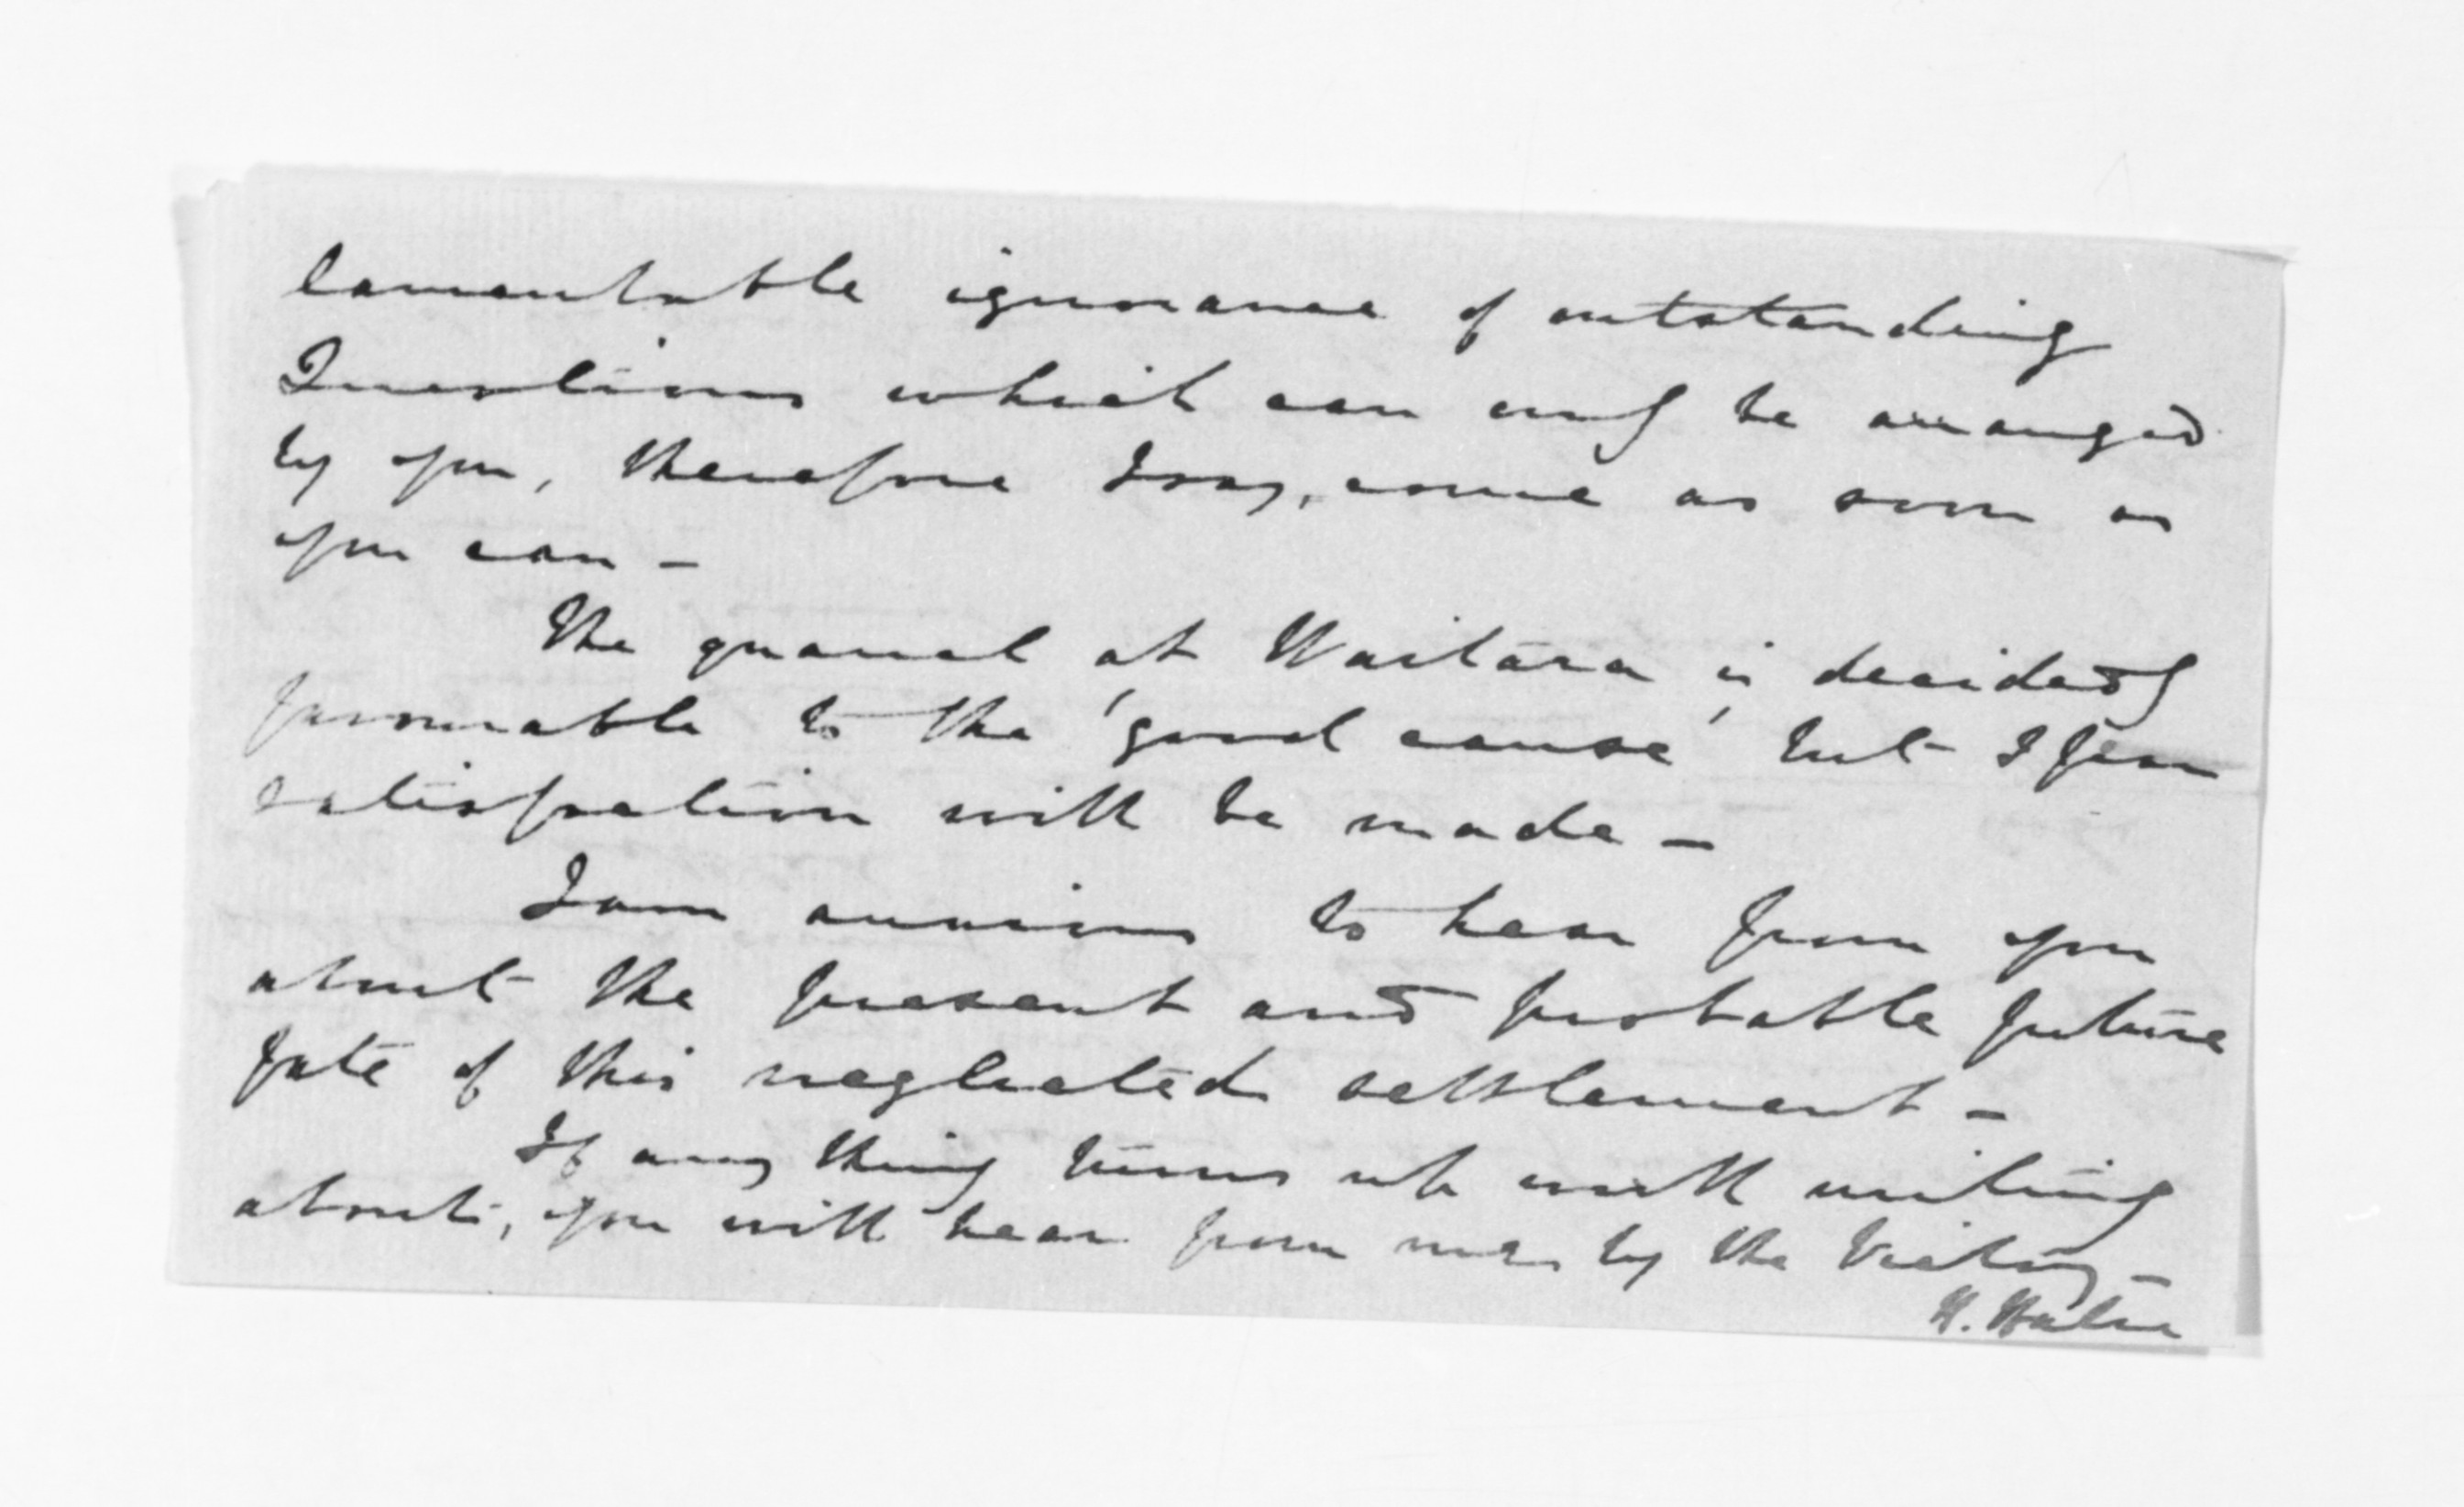 lamentable ignorance of outstanding
Questions which can only be arranged
by you, therefore I say, come as soon as
you can –
The quarrel at Waitara is decidedly
favourable to the 'good cause' but I fear
satisfaction will be made –
I am anxious to hear from you
about the present and probable future
fate of this neglected settlement –
If any thing turns up worth writing
about, you will hear from me by the Victory –
H. Halse